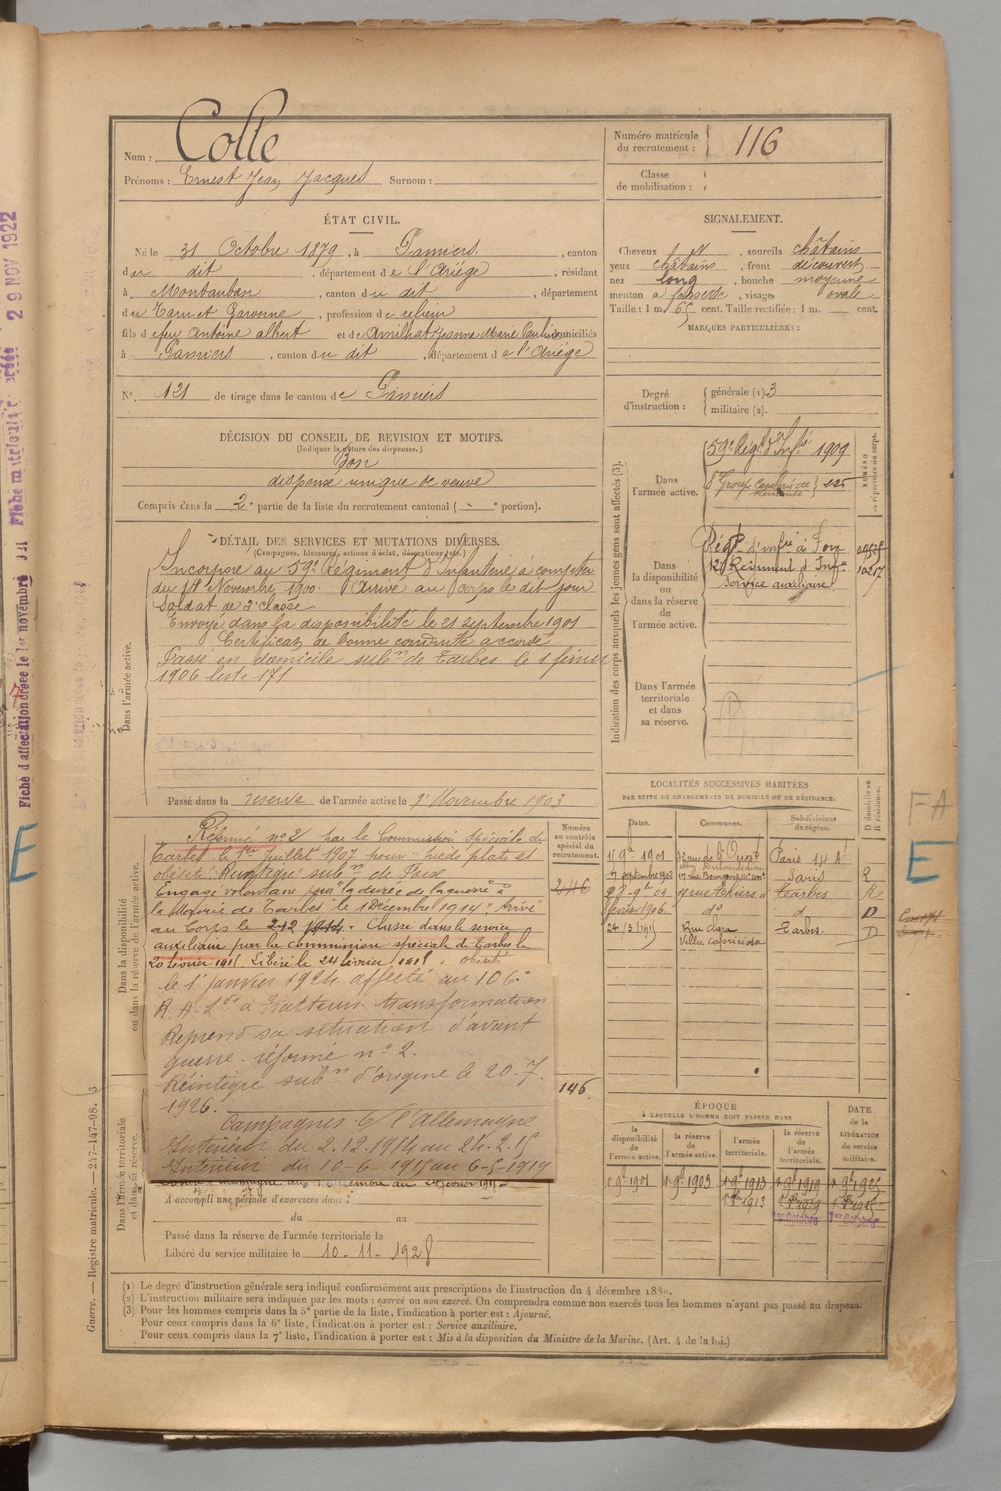 Nom : Colle
Prénoms : Ernest Jean Jacques Surnom :
Numéro matricule du recrutement : 116
Classe de mobilisation :
ÉTAT CIVIL.
Né le 31 Octobre 1879, à Pamiers, canton
du dit, département de l'Ariège, résidant
à Montauban, canton du dit, département
du Tarn et Garonne, profession de relieur
fils de feu Antoine albert et de Amilhat Jeanne Marie domiciliés
à Pamiers, canton du dit, département de l'Ariège
N° 121 de tirage dans le canton de Pamiers
SIGNALEMENT.
Cheveux, sourcils châtains
yeux châtains, front découvert
nez long, bouche moyenne
menton à fossette, visage ovale
Taille : 1 m. 65 cent. Taille rectifiée : 1 m. cent.
MARQUES PARTICULIÈRES :
Degré d'instruction : générale (1) 3
militaire (2).
DÉCISION DU CONSEIL DE REVISION ET MOTIFS.
(Indiquer la nature des dispenses.)
Bon
dispensé unique de veuve
Compris dans la 2e partie de la liste du recrutement cantonal ( e portion).
DÉTAIL DES SERVICES ET MUTATIONS DIVERSES.
(Campagnes, blessures, actions d'éclat, décorations, etc.)
Dans l'armée active.
Incorporé au 59e Régiment d'Infanterie à compter
du Novembre 1900. Arrivé au corps le dit jour
Soldat de 2e classe
Envoyé dans la disponibilité le 21 septembre 1901
Certificat de bonne conduite accordé
Passé en domicile subon de Tarbes le 1 février
1906 liste 171
Passé dans la réserve de l'armée active le 1er Novembre 1903
Indication des corps auxquels les jeunes gens sont affectés (3).
Dans l'armée active.
59e Régt d'Infie 1909
NUMÉRO au répertoire du corps.
Dans la disponibilité ou dans la réserve de l'armée active.
Régt d'infie à Foix
Régiment d'Infie
Service auxiliaire
Dans l'armée territoriale et dans sa réserve.
LOCALITÉS SUCCESSIVES HABITÉES
PAR SUITE DE CHANGEMENTS DE DOMICILE OU DE RÉSIDENCE.
Dates. Communes. Subdivisions de région. D domicile ou R résidence.
Paris
7 septembre 1902 Paris R
rue Thiers Tarbes R
février 1906 do do D
24/3/1915 Tarbes. D
Dans la disponibilité ou dans la réserve de l'armée active.
Numéro au contrôle spécial du recrutement.
Réformé n° 2 par la Commission Spéciale de
Tarbes le 1er Juillet 1907 pour "pieds plats et
obésité". Réintégré subon de Foix
Engagé volontaire pour "la durée de la guerre" à
la Mairie de Tarbes le 1 Décembre 1914. Arrivé
au Corps le 2-12 1914. Classé dans le service
auxiliaire par la commission spéciale de Tarbes le
20 février 1915 Libéré le 24 février 1915. obésité
le 1er janvier 1924 affecté au 106e
R.A.Lde à tracteurs transformation
Reprend sa situation d'avant
guerre. réformé n° 2.
Réintègre subon d'origine le 20-7.
1926.
Campagnes c/ l'Allemagne
Intérieur du 2.12.1914 au 24.2.15
Intérieur du 10-6-1915 au 6-5-1919
146.
Dans l'armée territoriale et dans sa réserve.
A accompli une période d'exercices dans :
du au
Passé dans la réserve de l'armée territoriale le
Libéré du service militaire le 10-11-1928
ÉPOQUE
À LAQUELLE L'HOMME DOIT PASSER DANS
la disponibilité de l'armée active. la réserve de l'armée active. l'armée territoriale. la réserve de l'armée territoriale. DATE de la LIBÉRATION du service militaire.
1 9bre 1901 1 9bre 1903 1 9bre 1913 1 9bre 1919 1 9bre 1925
1er Octobre 1er Octobre
(1) Le degré d'instruction générale sera indiqué conformément aux prescriptions de l'instruction du 4 décembre 1889.
(2) L'instruction militaire sera indiquée par les mots : exercé ou non exercé. On comprendra comme non exercés tous les hommes n'ayant pas passé au drapeau.
(3) Pour les hommes compris dans la 5e partie de la liste, l'indication à porter est : Ajourné.
Pour ceux compris dans la 6e liste, l'indication à porter est : Service auxiliaire.
Pour ceux compris dans la 7e liste, l'indication à porter est : Mis à la disposition du Ministre de la Marine. (Art. 4 de la loi.)
Guerre. — Registre matricule. — 247-147-98.
Fiche d'affectation créée le 1er novembre
Fiche matricule 29 NOV 1922
E
FA
E